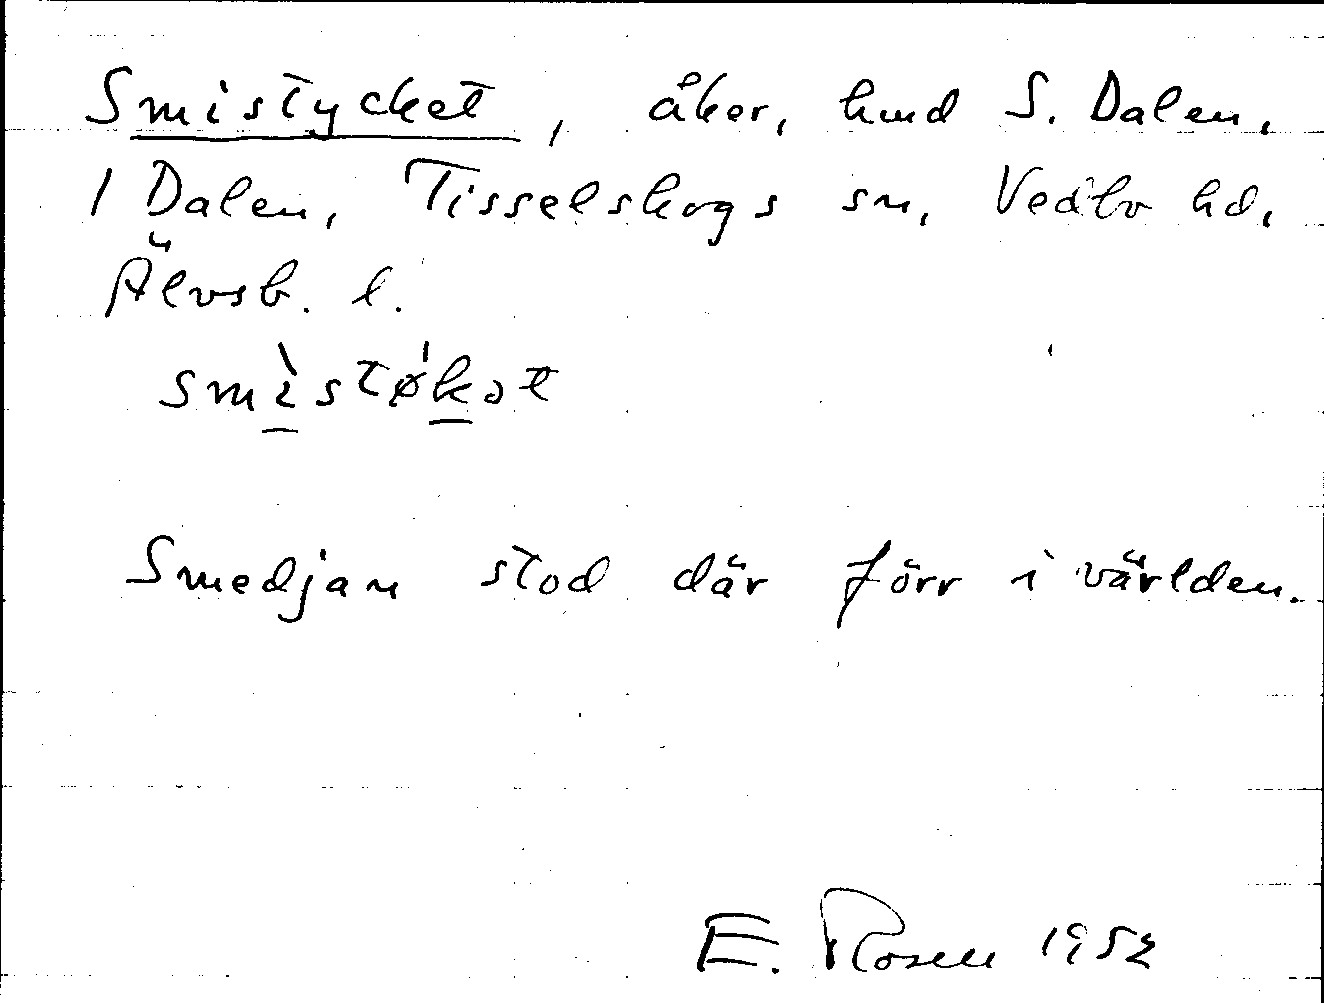 Smistycket, åker, hmd S. Dalen,
1 Dalen, Tisselskogs sn, Vedbo hd,
Älvsb. l.
smìstø̍kət
Smedjan stod där förr i världen.
E. Rosen 1952